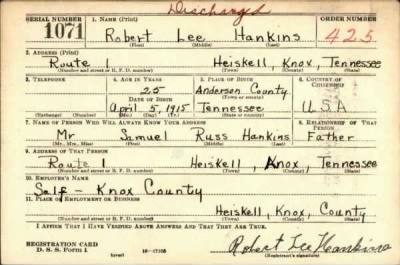 Discharged
SERIAL NUMBER 1. NAME (Print) ORDER NUMBER
1071 Robert Lee Hankins 425
(First) (Middle) (Last)
2. ADDRESS (Print)
Route 1 Heiskell, Knox, Tennessee
(Number and street or R. F. D. number) (Town) (County) (State)
3. TELEPHONE 4. AGE IN YEARS 5. PLACE OF BIRTH 6. COUNTRY OF CITIZENSHIP
25 Anderson County
DATE OF BIRTH (Town or county)
April 5, 1915 Tennessee USA
(Mo.) (Day) (Yr.) (State or country)
7. NAME OF PERSON WHO WILL ALWAYS KNOW YOUR ADDRESS 8. RELATIONSHIP OF THAT PERSON
Mr Samuel Russ Hankins Father
(Mr., Mrs., Miss) (First) (Middle) (Last)
9. ADDRESS OF THAT PERSON
Route 1 Heiskell Knox, Tennessee
(Number and street or R. F. D. number) (Town) (County) (State)
10. EMPLOYER'S NAME
Self - Knox County
11. PLACE OF EMPLOYMENT OR BUSINESS
Heiskell, Knox, County
(Number and street or R. F. D. number) (Town) (County) (State)
I AFFIRM THAT I HAVE VERIFIED ABOVE ANSWERS AND THAT THEY ARE TRUE.
REGISTRATION CARD
D. S. S. Form 1 Robert Lee Hankins
(Registrant's signature)